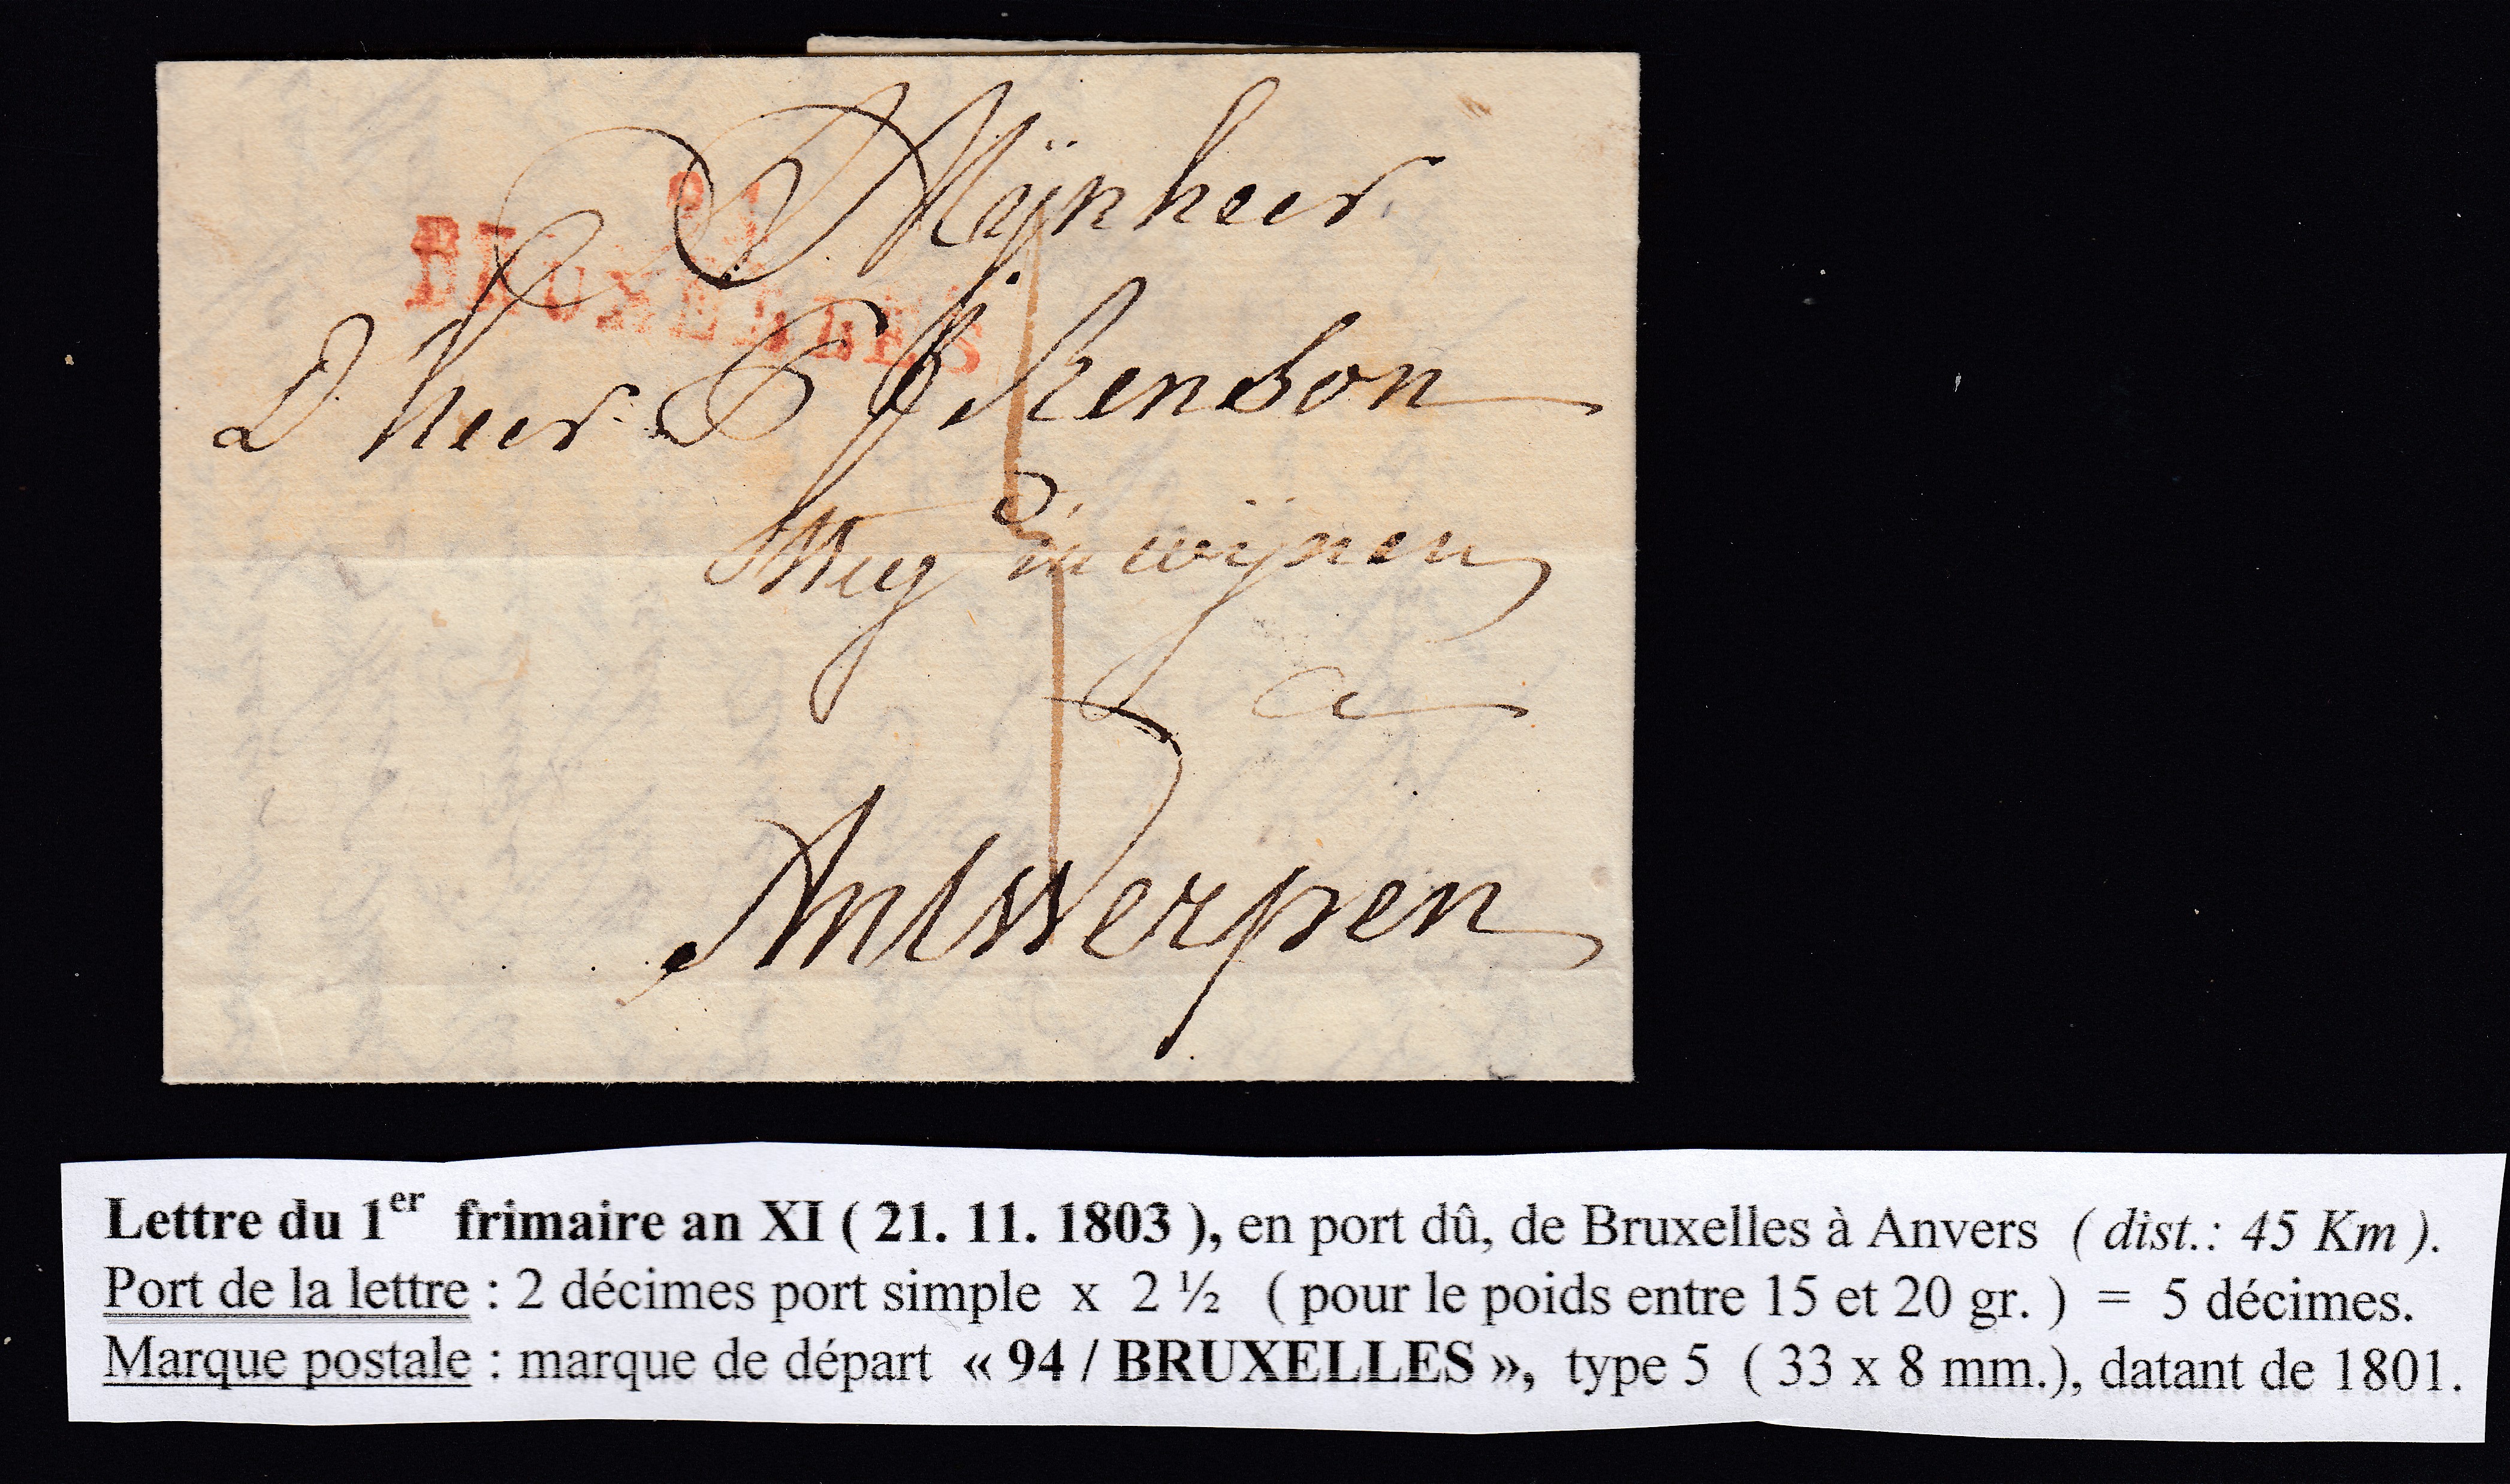 94
BRUXELLES
Mÿnheer
D heer
in wijnen
a
Antwerpen
Lettre du 1er frimaire an XI ( 21. 11. 1803 ), en port dû, de Bruxelles à Anvers ( dist.: 45 Km ).
Port de la lettre : 2 décimes port simple x 2 ½ ( pour le poids entre 15 et 20 gr. ) = 5 décimes.
Marque postale : marque de départ « 94 / BRUXELLES », type 5 ( 33 x 8 mm.), datant de 1801.